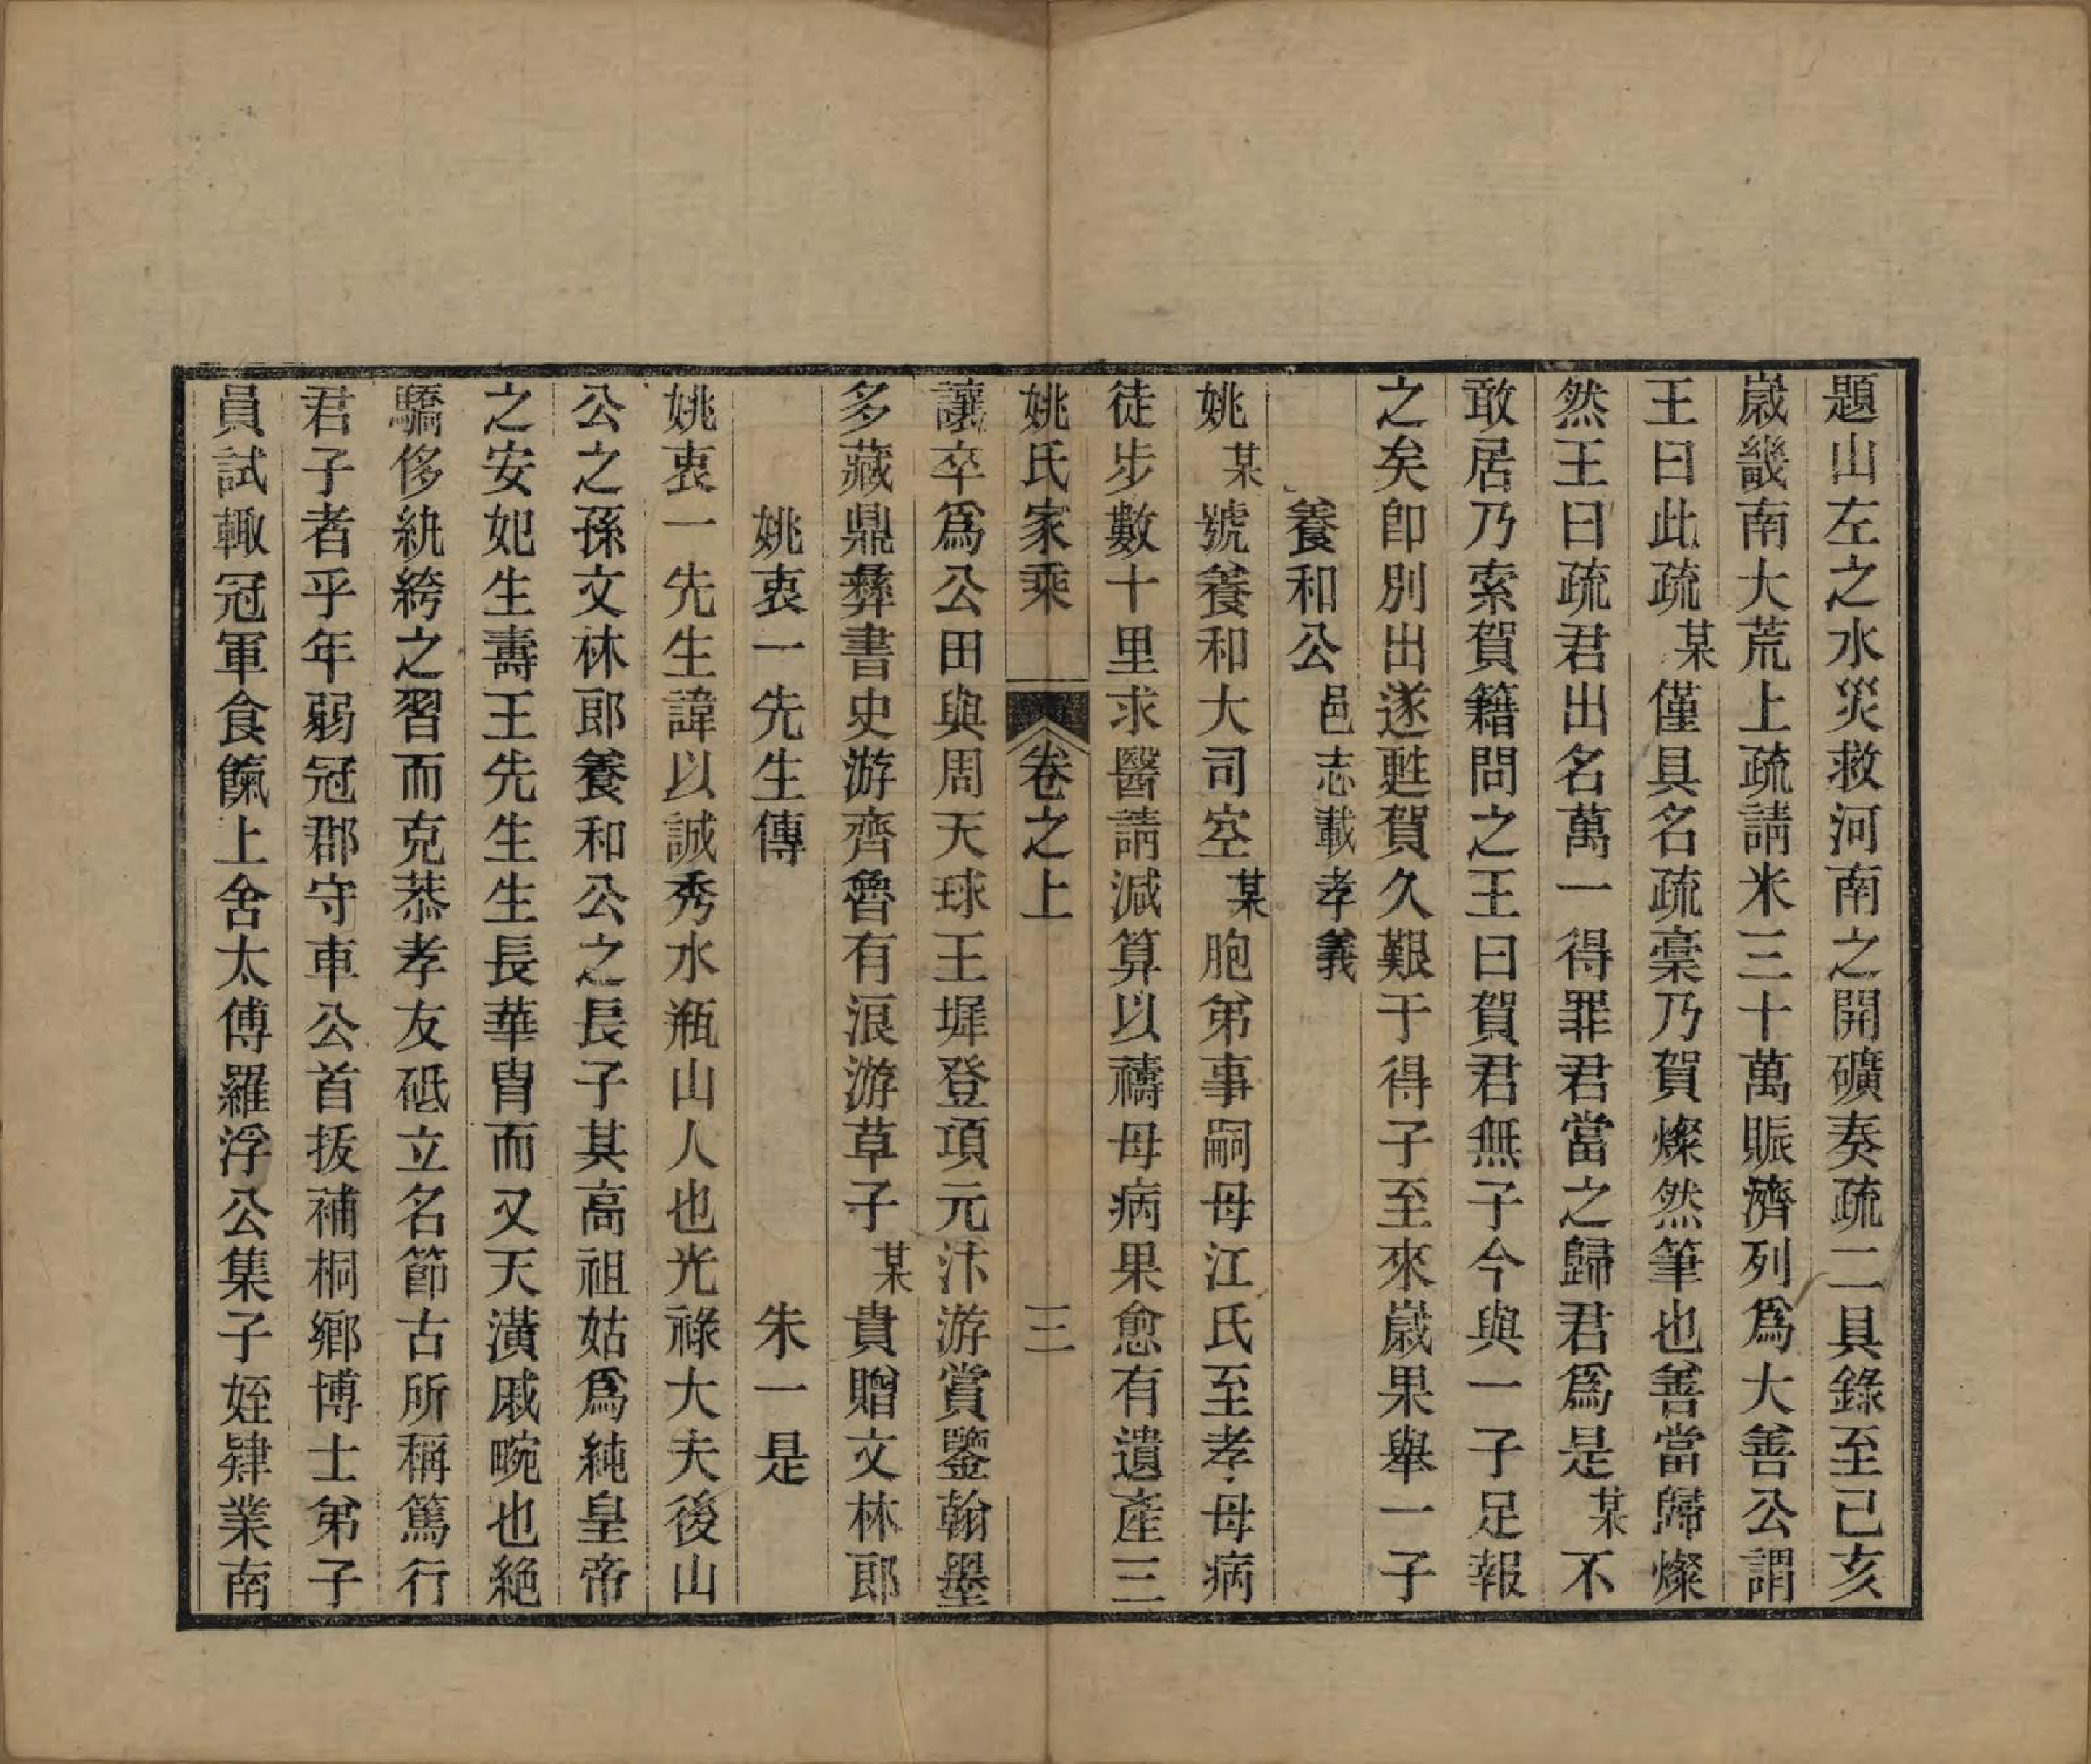 題山左之水災救河南之開礦奏疏二具錄至己亥
歲畿南大荒上疏請米三十萬賑濟列爲大善公謂
王曰此疏某僅具名疏稾乃賀燦然筆也善當歸燦
然王曰疏君出名萬一得罪君當之歸君爲是某不
敢居乃索賀籍問之王曰賀君無子今與一子足報
之矣卽別出遂甦賀久艱于得子至來歲果舉一子
養和公邑志載孝義
姚某號養和大司空某胞弟事嗣母江氏至孝母病
徒步數十里求醫請減算以禱母病果愈有遺產三
姚氏家乘 卷之上 三
讓卒爲公田與周天球王墀登項元汴游賞鑒翰墨
多藏鼎彝書史游齊魯有浪游草子某貴贈文林郎
姚衷一先生傳 朱一是
姚衷一先生諱以誠秀水瓶山人也光祿大夫後山
公之孫文林郎養和公之長子其高祖姑爲純皇帝
之安妃生壽王先生生長華胄而又天潢戚畹也絕
驕侈紈絝之習而克恭孝友砥立名節古所稱篤行
君子者乎年弱冠郡守車公首拔補桐鄉博士弟子
員試輙冠軍食餼上舍太傅羅浮公集子姪肄業南